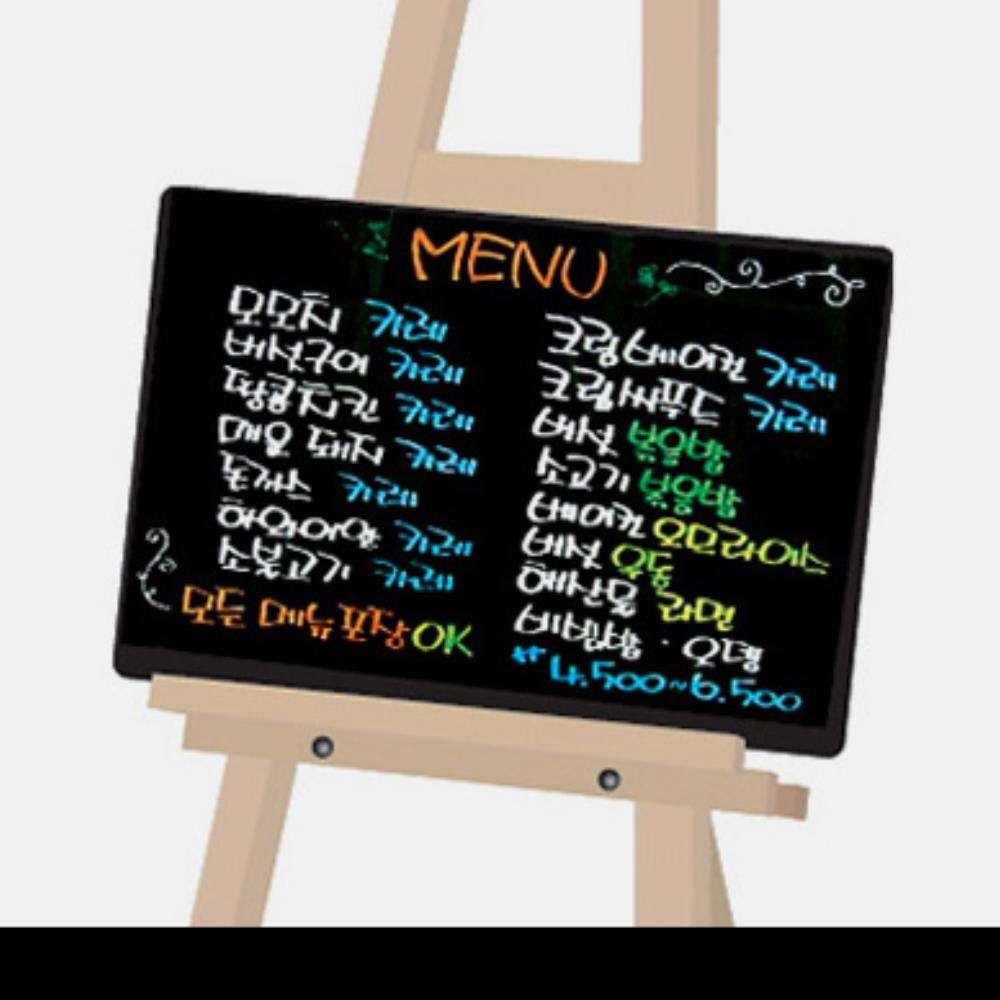 MENU
모모치 카레
버섯구이 카레
땅콩치킨 카레
매운 돼지 카레
돈까스 카레
하와이안 카레
소불고기 카레
모든 메뉴 포장 OK
크림베이컨 카레
크림씨푸드 카레
버섯 볶음밥
소고기 볶음밥
베이컨 오므라이스
버섯 우동
해산물 라면
비빔밥 · 오뎅
4.500~6.500